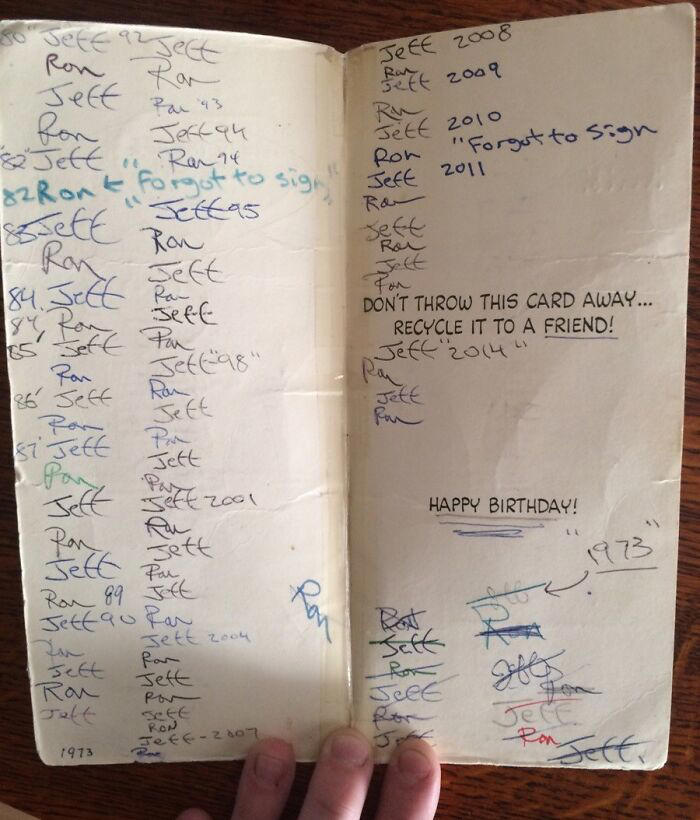 80" Jeff
Ron
Jeff
Ron
"82" Jeff
82 Ron ← "Forgot to sign"
83 Jeff
Ron
84. Jeff
84' Ron
85' Jeff
Ron
86' Jeff
Ron
87' Jeff
Ron
Jeff
Ron
Jeff
Ron 89
Jeff 90
Ron
Jeff
Ron
Jeff
1973
92 Jeff
Ron
Ron '93
Jeff 94
Ron 94
Jeff 95
Ron
Jeff
Ron
Jeff
Ron
Jeff "98"
Ron
Jeff
Ron
Jeff
Ron
Jeff 2001
Ron
Jeff
Ron
Jeff
Ron
Ron
Jeff 2004
Ron
Jeff
Ron
Jeff
Ron
Jeff - 2007
Ron
Jeff 2008
Ron
Jeff 2009
Ron
Jeff 2010
Ron "Forgot to Sign
Jeff 2011
Ron
Jeff
Ron
Jeff
Ron
DON'T THROW THIS CARD AWAY...
RECYCLE IT TO A FRIEND!
Jeff "2014"
Ron
Jeff
Ron
HAPPY BIRTHDAY!
"1973"
Jeff
Ron
Jeff
Ron
Jeff
Ron
Jeff
Ron
Jeff
Ron
Jeff
Ron
Jeff.